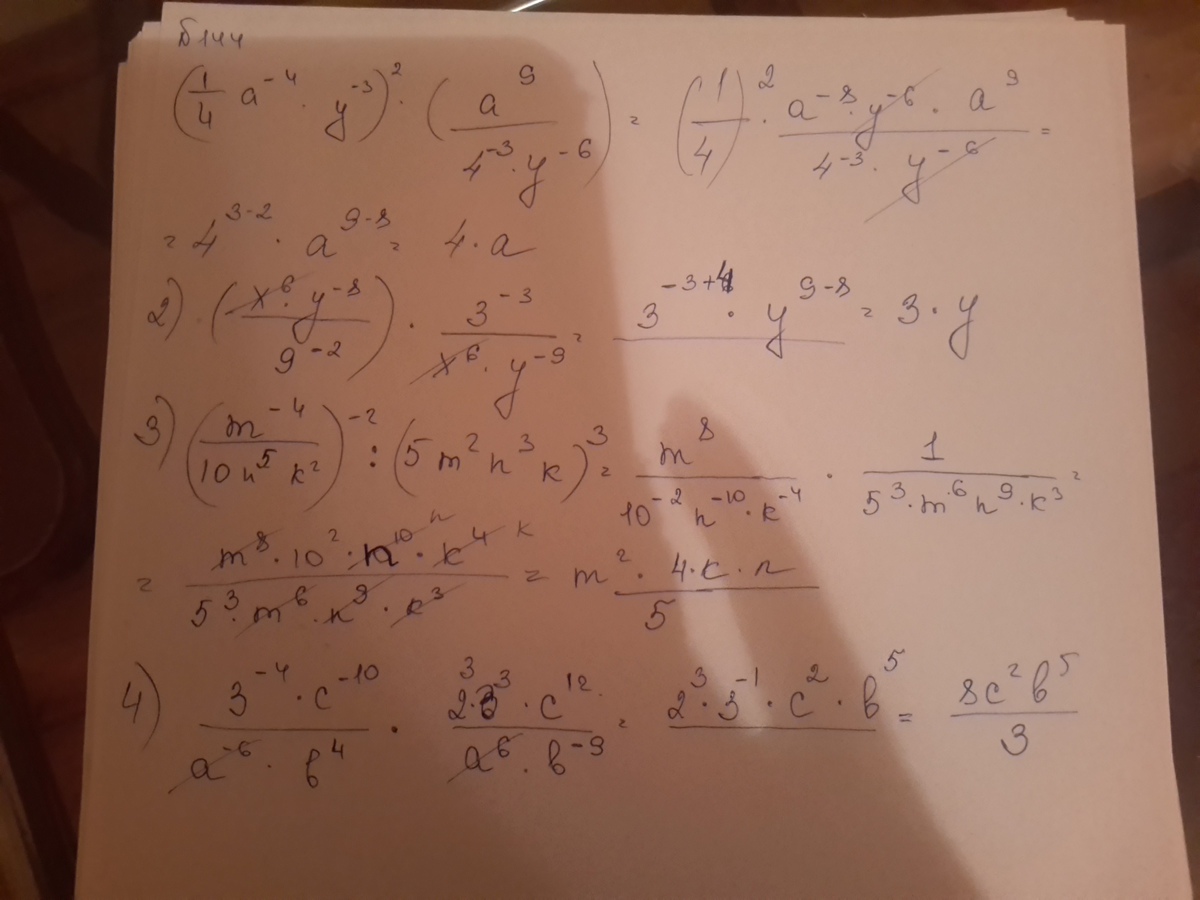 Б144
(1/4 a⁻⁴ · y⁻³)² · (a⁹ / 4⁻³ · y⁻⁶) = (1/4)² · a⁻⁸ · y⁻⁶ · a⁹ / 4⁻³ · y⁻⁶ =
= 4³⁻² · a⁹⁻⁸ = 4 · a
2) · (x⁶ · y⁻⁸ / 9⁻²) · 3⁻³ / x⁶ · y⁻⁹ = 3⁻³⁺⁴ · y⁹⁻⁸ = 3 · y
3) (m⁻⁴ / 10 n⁵ k²)⁻² : (5 m² n³ k)³ = m⁸ / 10⁻² n⁻¹⁰ · k⁻⁴ · 1 / 5³ · m⁶ n⁹ · k³ =
= m⁸ · 10² · n¹⁰ n · k⁴ k / 5³ · m⁶ · n⁹ · k³ = m² · 4 · k · n / 5
4) 3⁻⁴ · c⁻¹⁰ / a⁻⁶ · b⁴ · 2³ · 3³ · c¹² / a⁶ · b⁻⁹ = 2³ · 3⁻¹ · c² · b⁵ = 8c² b⁵ / 3